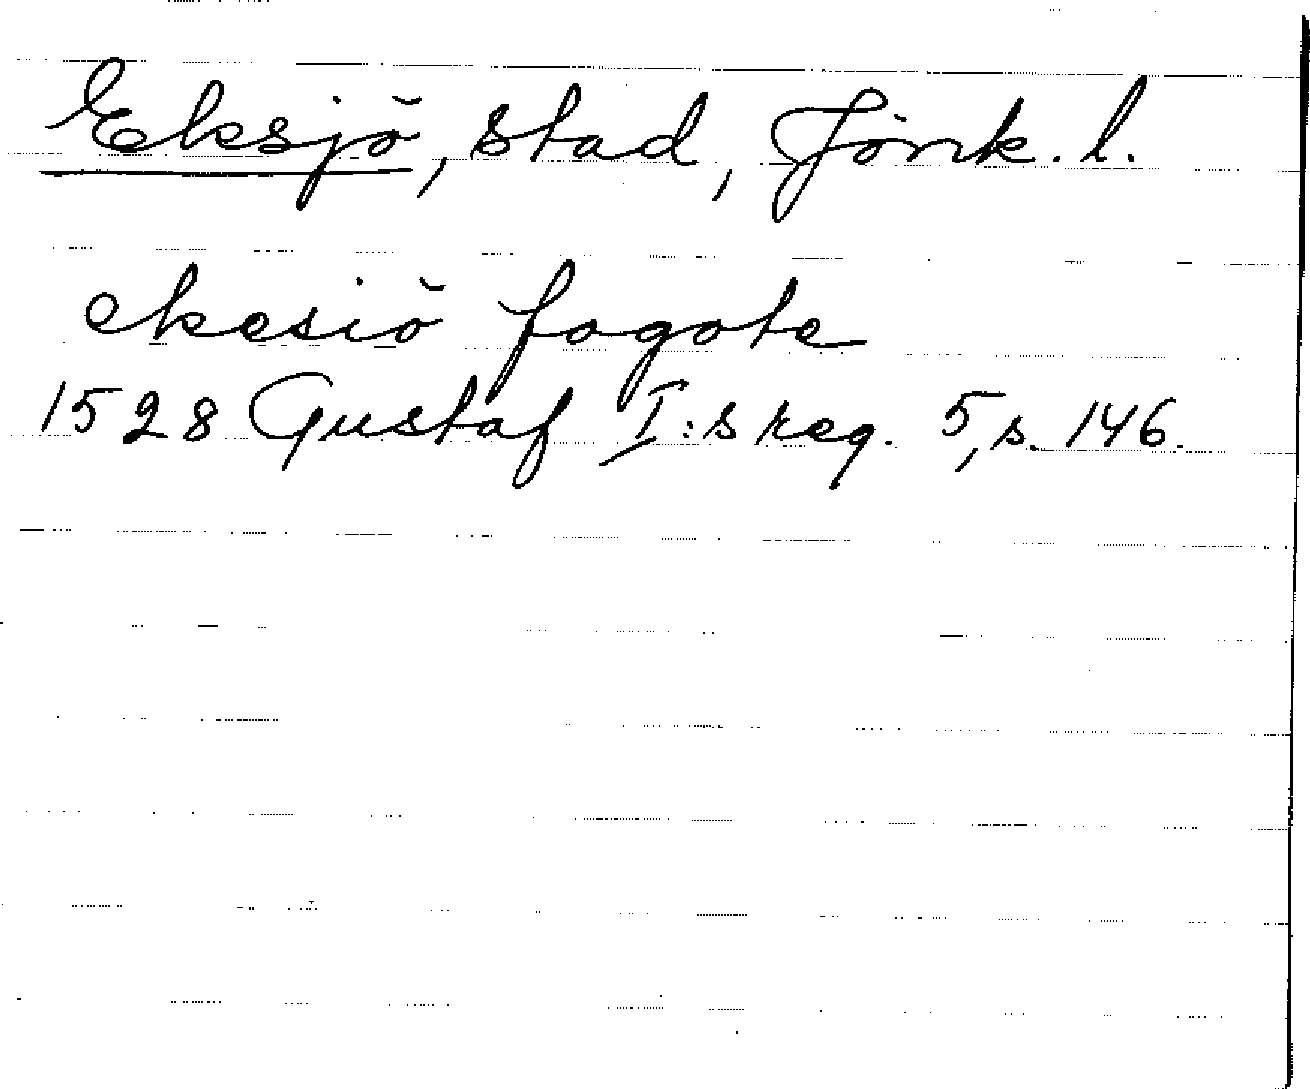 Eksjö, stad, Jönk. l.
ekesiö fogote
1528 Gustaf I:s reg. 5, s. 146.